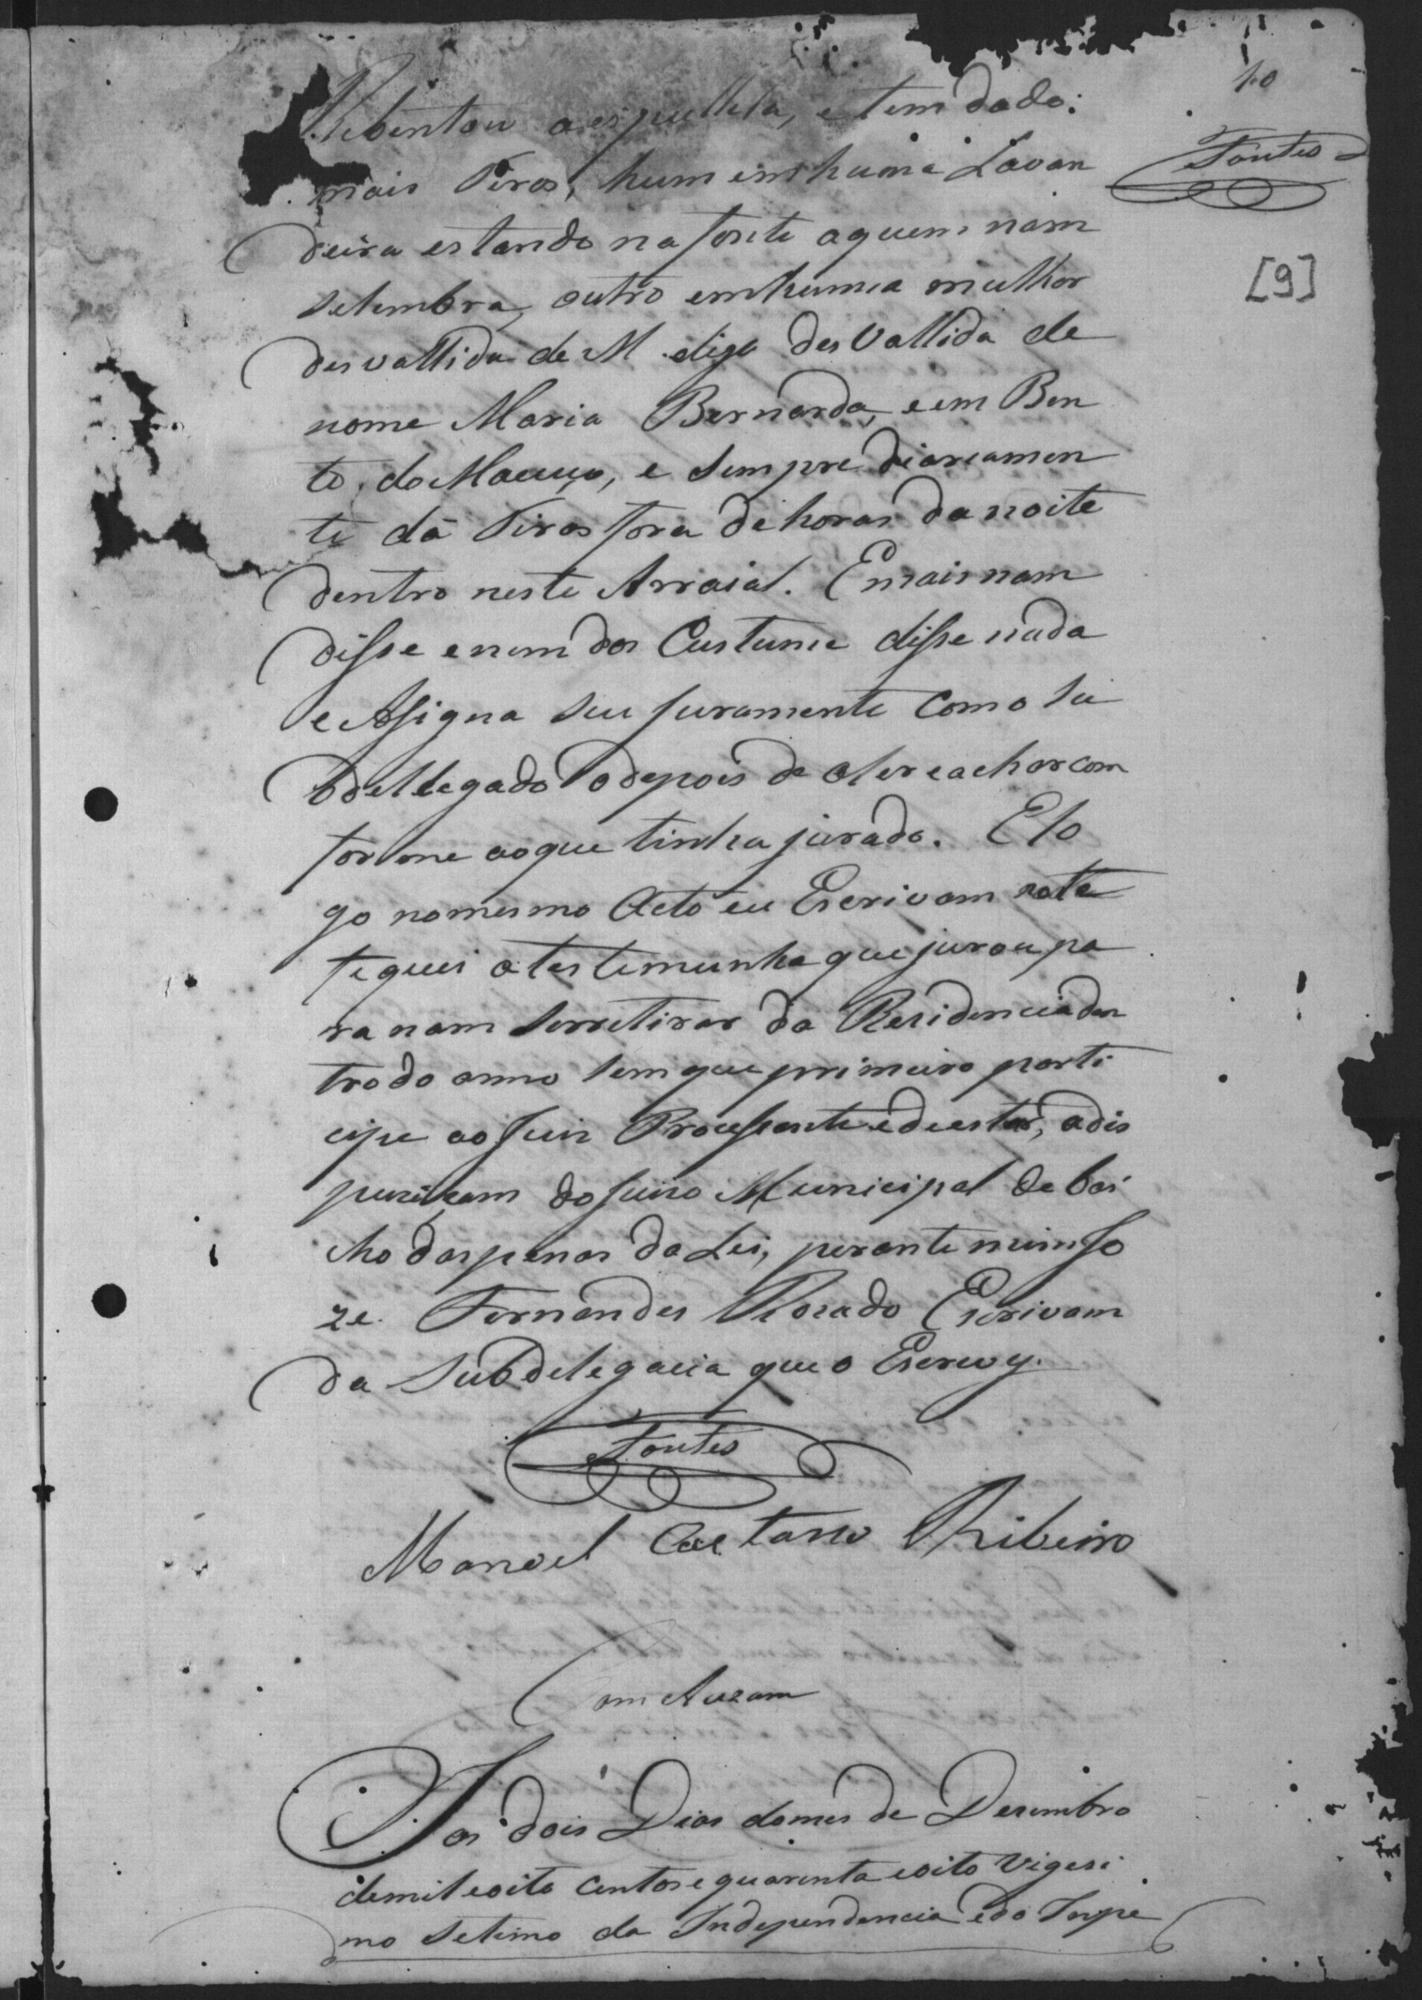 10
Fontes
[9]
Rebentou a espulleta, e tem dado
mais Tiros, hum em huma Lavan
deira estando na fonte aquem nam
selembra, outro emhuma mulher
desvallida de M digo desvallida de
nome Maria Bernarda, e em Ben
to do Macuco, e sempre diariamen
te dá Tiros fora de horas da noite
dentro neste Arraial. E mais nam
disse e nem dos Custume disse nada
e Assigna seu juramento com o Su
bdellegado odepois de oler e achar com
forme aoque tinha jurado. E lo
go nomesmo Acto eu Escrivam note
fiquei atestemunha que jurou pa
ra nam serretirar da Residencia den
trodo anno sem que primeiro parti
cipe ao Juiz Processante e de estar, adis
puziçam do Juizo Municipal debai
cho das penas da Lei, perante mim Jo
ze Fernandes Rozado Escrivam
da Subdelegacia que o Escrevy.
Fontes
Manoel Caetano Ribeiro
Comcluzam
Aos dois Dias domes de Dezembro
demil eoito centos e quarenta eoito vigesi
mo setimo da Independencia edo Impe